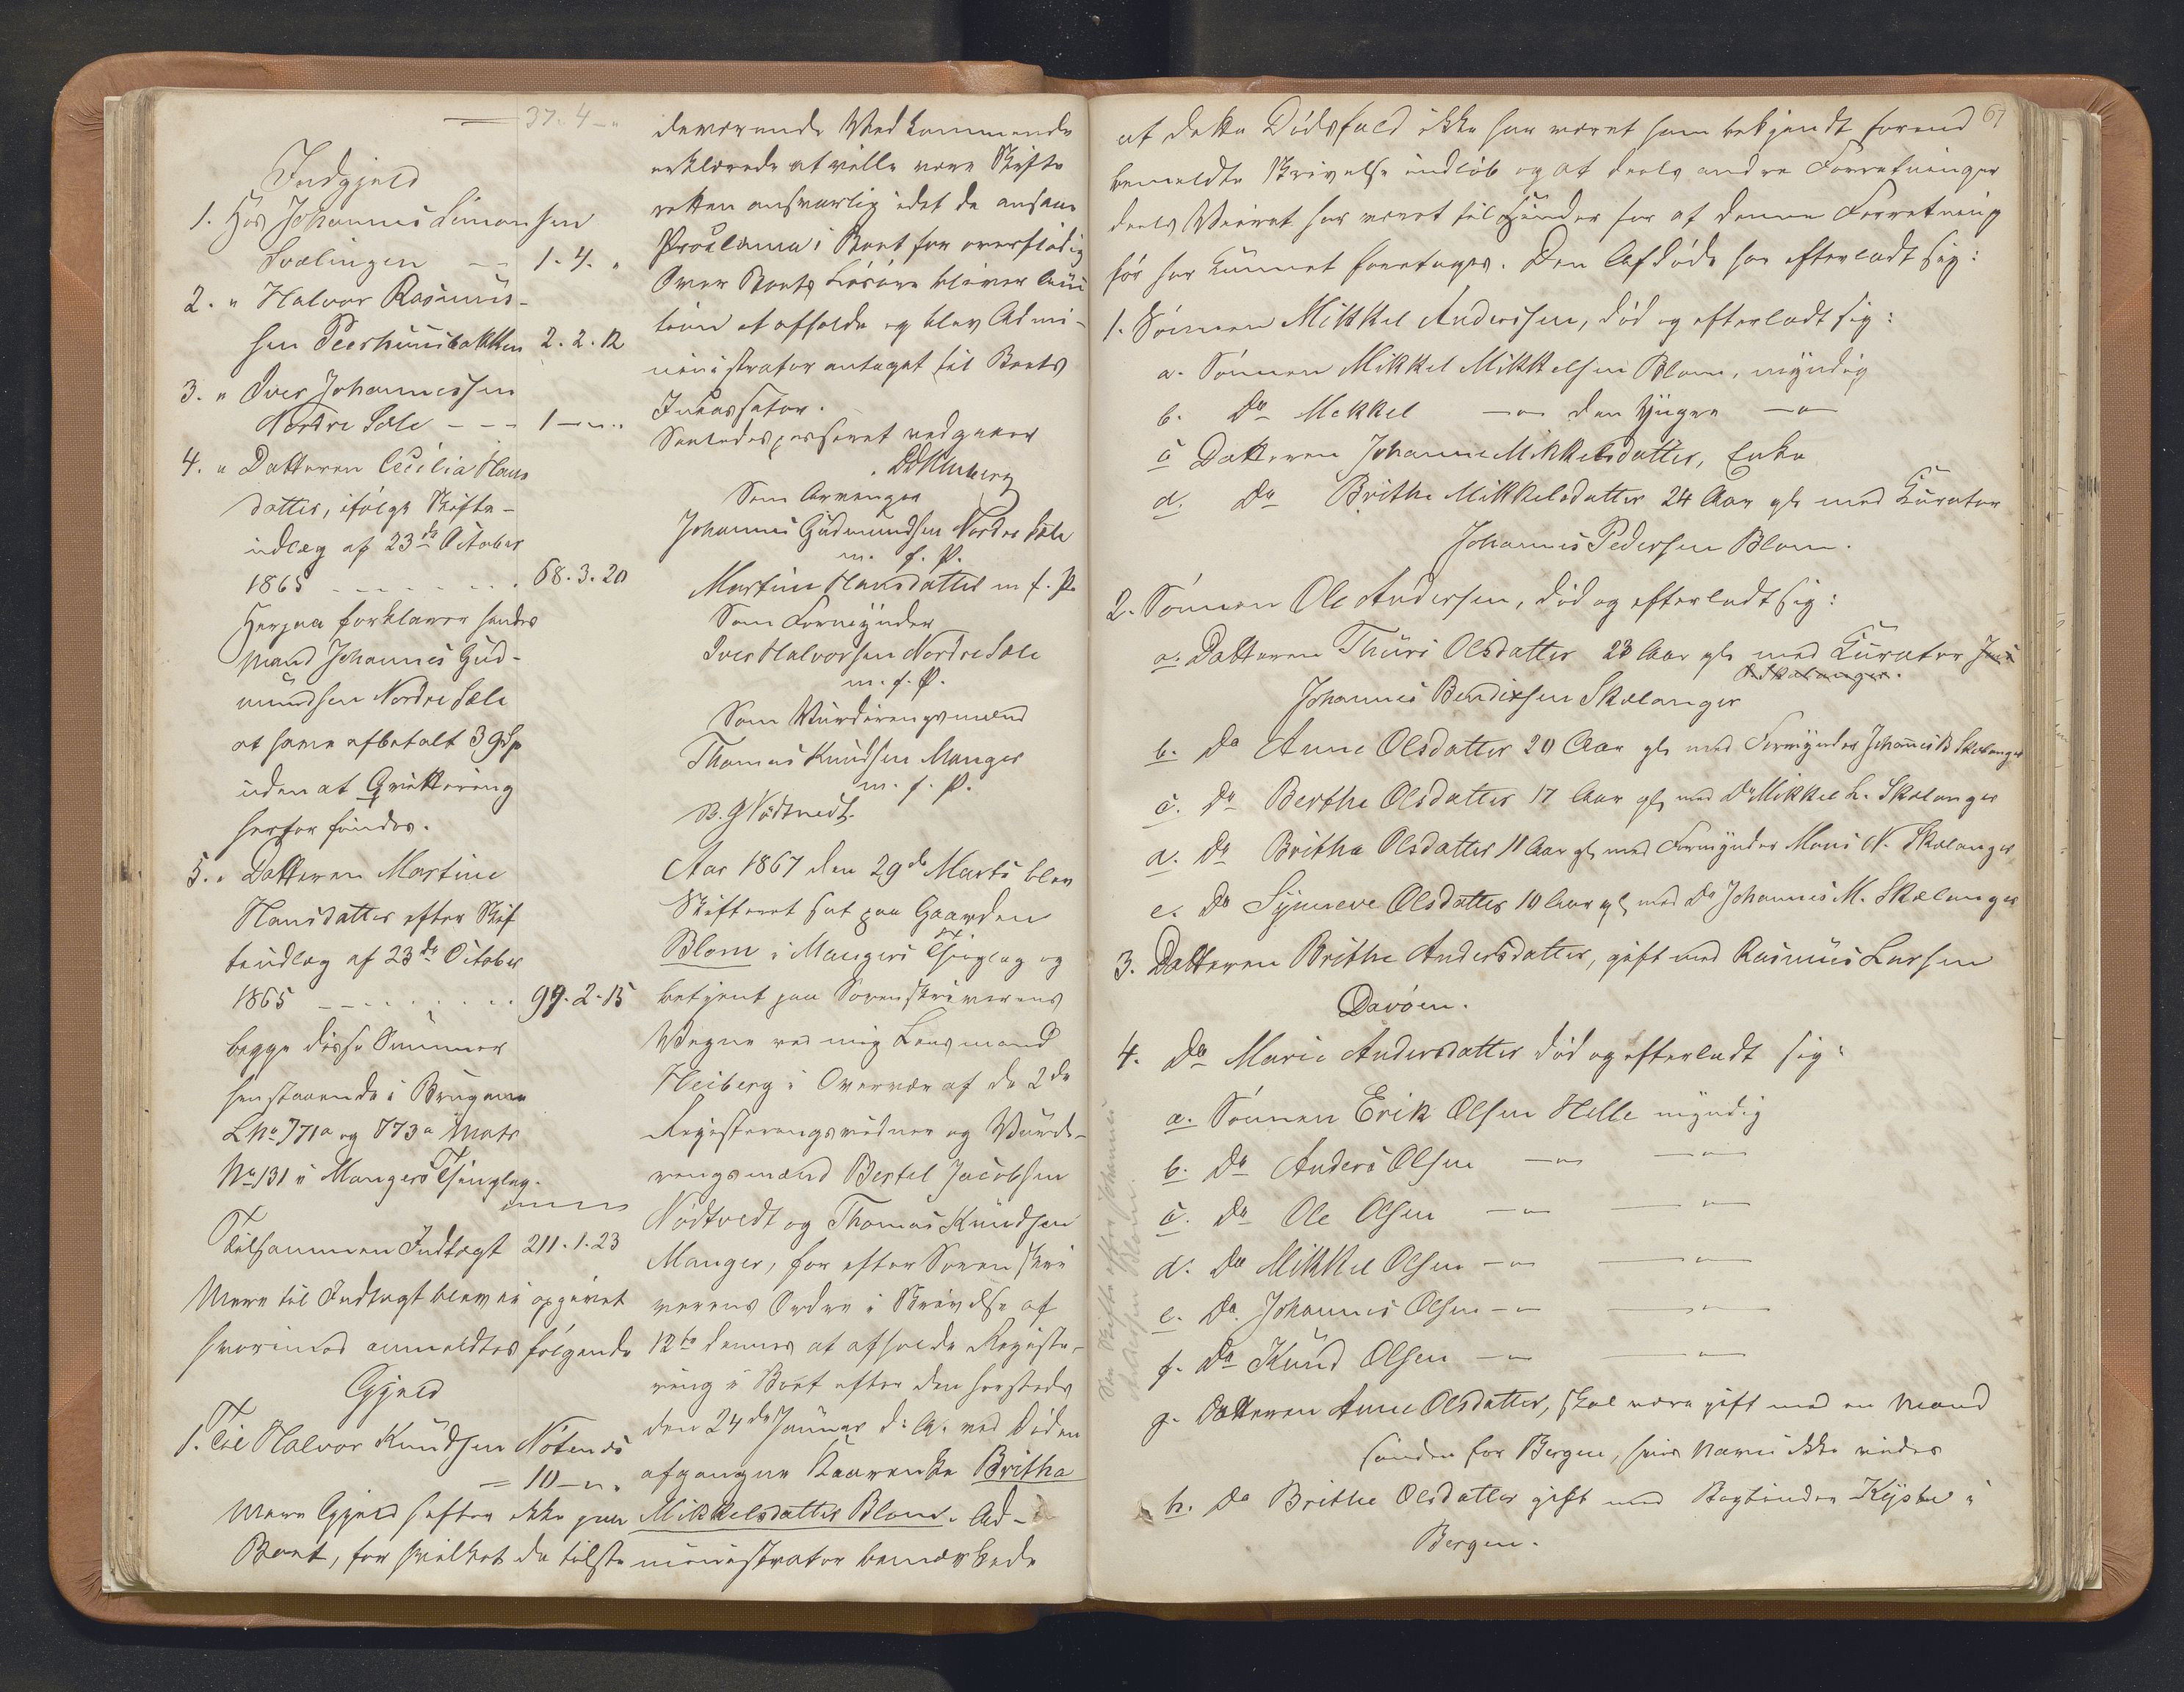 37. 4 - "
Indgjeld
1. Hos Johannes Simonsen
Sælingen - - 1. 4. "
2. " Halvor Rasmus-
sen Peershuusbakken 2. 2. 12
3. " Iver Johannessen
Nordre Sæle - - - 1 - " - "
4. " Datteren Cecilia Hans
datter, ifølge Skifte-
udlæg af 23de October
1865 - - - - - - 68. 3. 20
Herpaa forklarer hendes
Mand Johannes Gud-
mundsen Nordre Sæle
at have afbetalt 3 Spd
uden at Qvittering
herfor findes.
5. " Datteren Martine
Hansdatter efter Skif
teudlæg af 23de October
1865 - - - - - - 99. 2. 15
begge disse Summer
henstaaende i Brugene
LNo 771a og 773a Matr
No 131 i Mangers Thinglag.
Tilsammen Indtægt 211. 1. 23
Mere til Indtægt blev ei opgivet
hvorimod anmeldtes følgende
Gjeld
1. Til Halvor Knudsen Nøtenes
= 10 - " .
Mere Gjeld hefter ikke paa
Boet, for hvilket de tilste
deværende Vedkommende
erklærede at ville være Skifte
retten ansvarlig idet de ansaae
Proclama i Boet for overflødig
Over Boets Løsøre bliver Auc
tion at afholde og blev Admi-
nistrator antaget til Boets
Incassator.
Saaledes passeret vedgaaes
Heiberg
Som Arvinger
Johannes Gudmundsen Nordre Sæle
m. f. P.
Martine Hansdatter m f. P.
Som Formynder
Iver Halvorsen Nordre Sæle
m. f. P.
Som Vurderingsmænd
Thomas Knudsen Manger
m. f. P.
B. J Nødtvedt.
Aar 1867 den 29de Marts blev
Skifteret sat paa Gaarden
Blom i Mangers Thinglag og
betjent paa Sorenskriverens
Vegne ved mig Lensmand
Heiberg i Overvær af de 2de
Registeringsvidner og Vurde-
ringsmænd Bertel Jacobsen
Nødtvedt og Thomas Knudsen
Manger, for efter Sorenskri
verens Ordre i Skrivelse af
12te dennes at afholde Registe-
ring i Boet efter den hersteds
den 24de Januar d: A. ved Døden
afgangne Kaarenke Britha
Mikkelsdatter Blom. Ad-
ministrator bemærkede
67
at dette Dødsfald ikke har været ham bekjendt forend
bemeldte Skrivelse indløb og at deels andre Forretninger
deels Veiret har været til Hinder for at denne Forretning
før har kunnet foretages. Den Afdøde har efterladt sig:
1. Sønnen Mikkel Andersen, død og efterladt sig:
a. Sønnen Mikkel Mikkelsen Blom, myndig
b. Do Mikkel - " - den Yngre - " -
c Datteren Johanne Mikkelsdatter, Enke
d. Do Brithe Mikkelsdatter 24 Aar gl. med Curator
Johannes Pedersen Blom.
2. Sønnen Ole Andersen, død og efterladt sig:
a. Datteren Thuri Olsdatter 23 Aar gl. med Curator
Skalanger.
Johannes Bendixsen Skalanger
b. Do Anne Olsdatter 20 Aar gl. med Formynder Johannes B Skalanger
c. Do Berthe Olsdatter 17 Aar gl. med Do Mikkel L. Skalanger
d. Do Britha Olsdatter 11 Aar gl. med Formynder Mons N. Skalanger
e. Do Synneve Olsdatter 10 Aar gl. med Do Johannes M. Skalanger
3. Datteren Brithe Andersdatter, gift med Rasmus Larsen
Davøen.
4. Do Marie Andersdatter død og efterladt sig:
a. Sønnen Erik Olsen Helle myndig
b. Do Anders Olsen - " - - " -
c. Do Ole Olsen - " - - " -
d. Do Mikkel Olsen - " - - " -
e. Do. Johannes Olsen - " - - " -
f. Do Knud Olsen - " - - " -
g. Datteren Anne Olsdatter, skal være gift med en Mand
sønden for Bergen, hvis Navn ikke vides
h. Do Brithe Olsdatter gift med Bogbinder Kyster i
Bergen.
See Skifte efter Johannes
Blom.